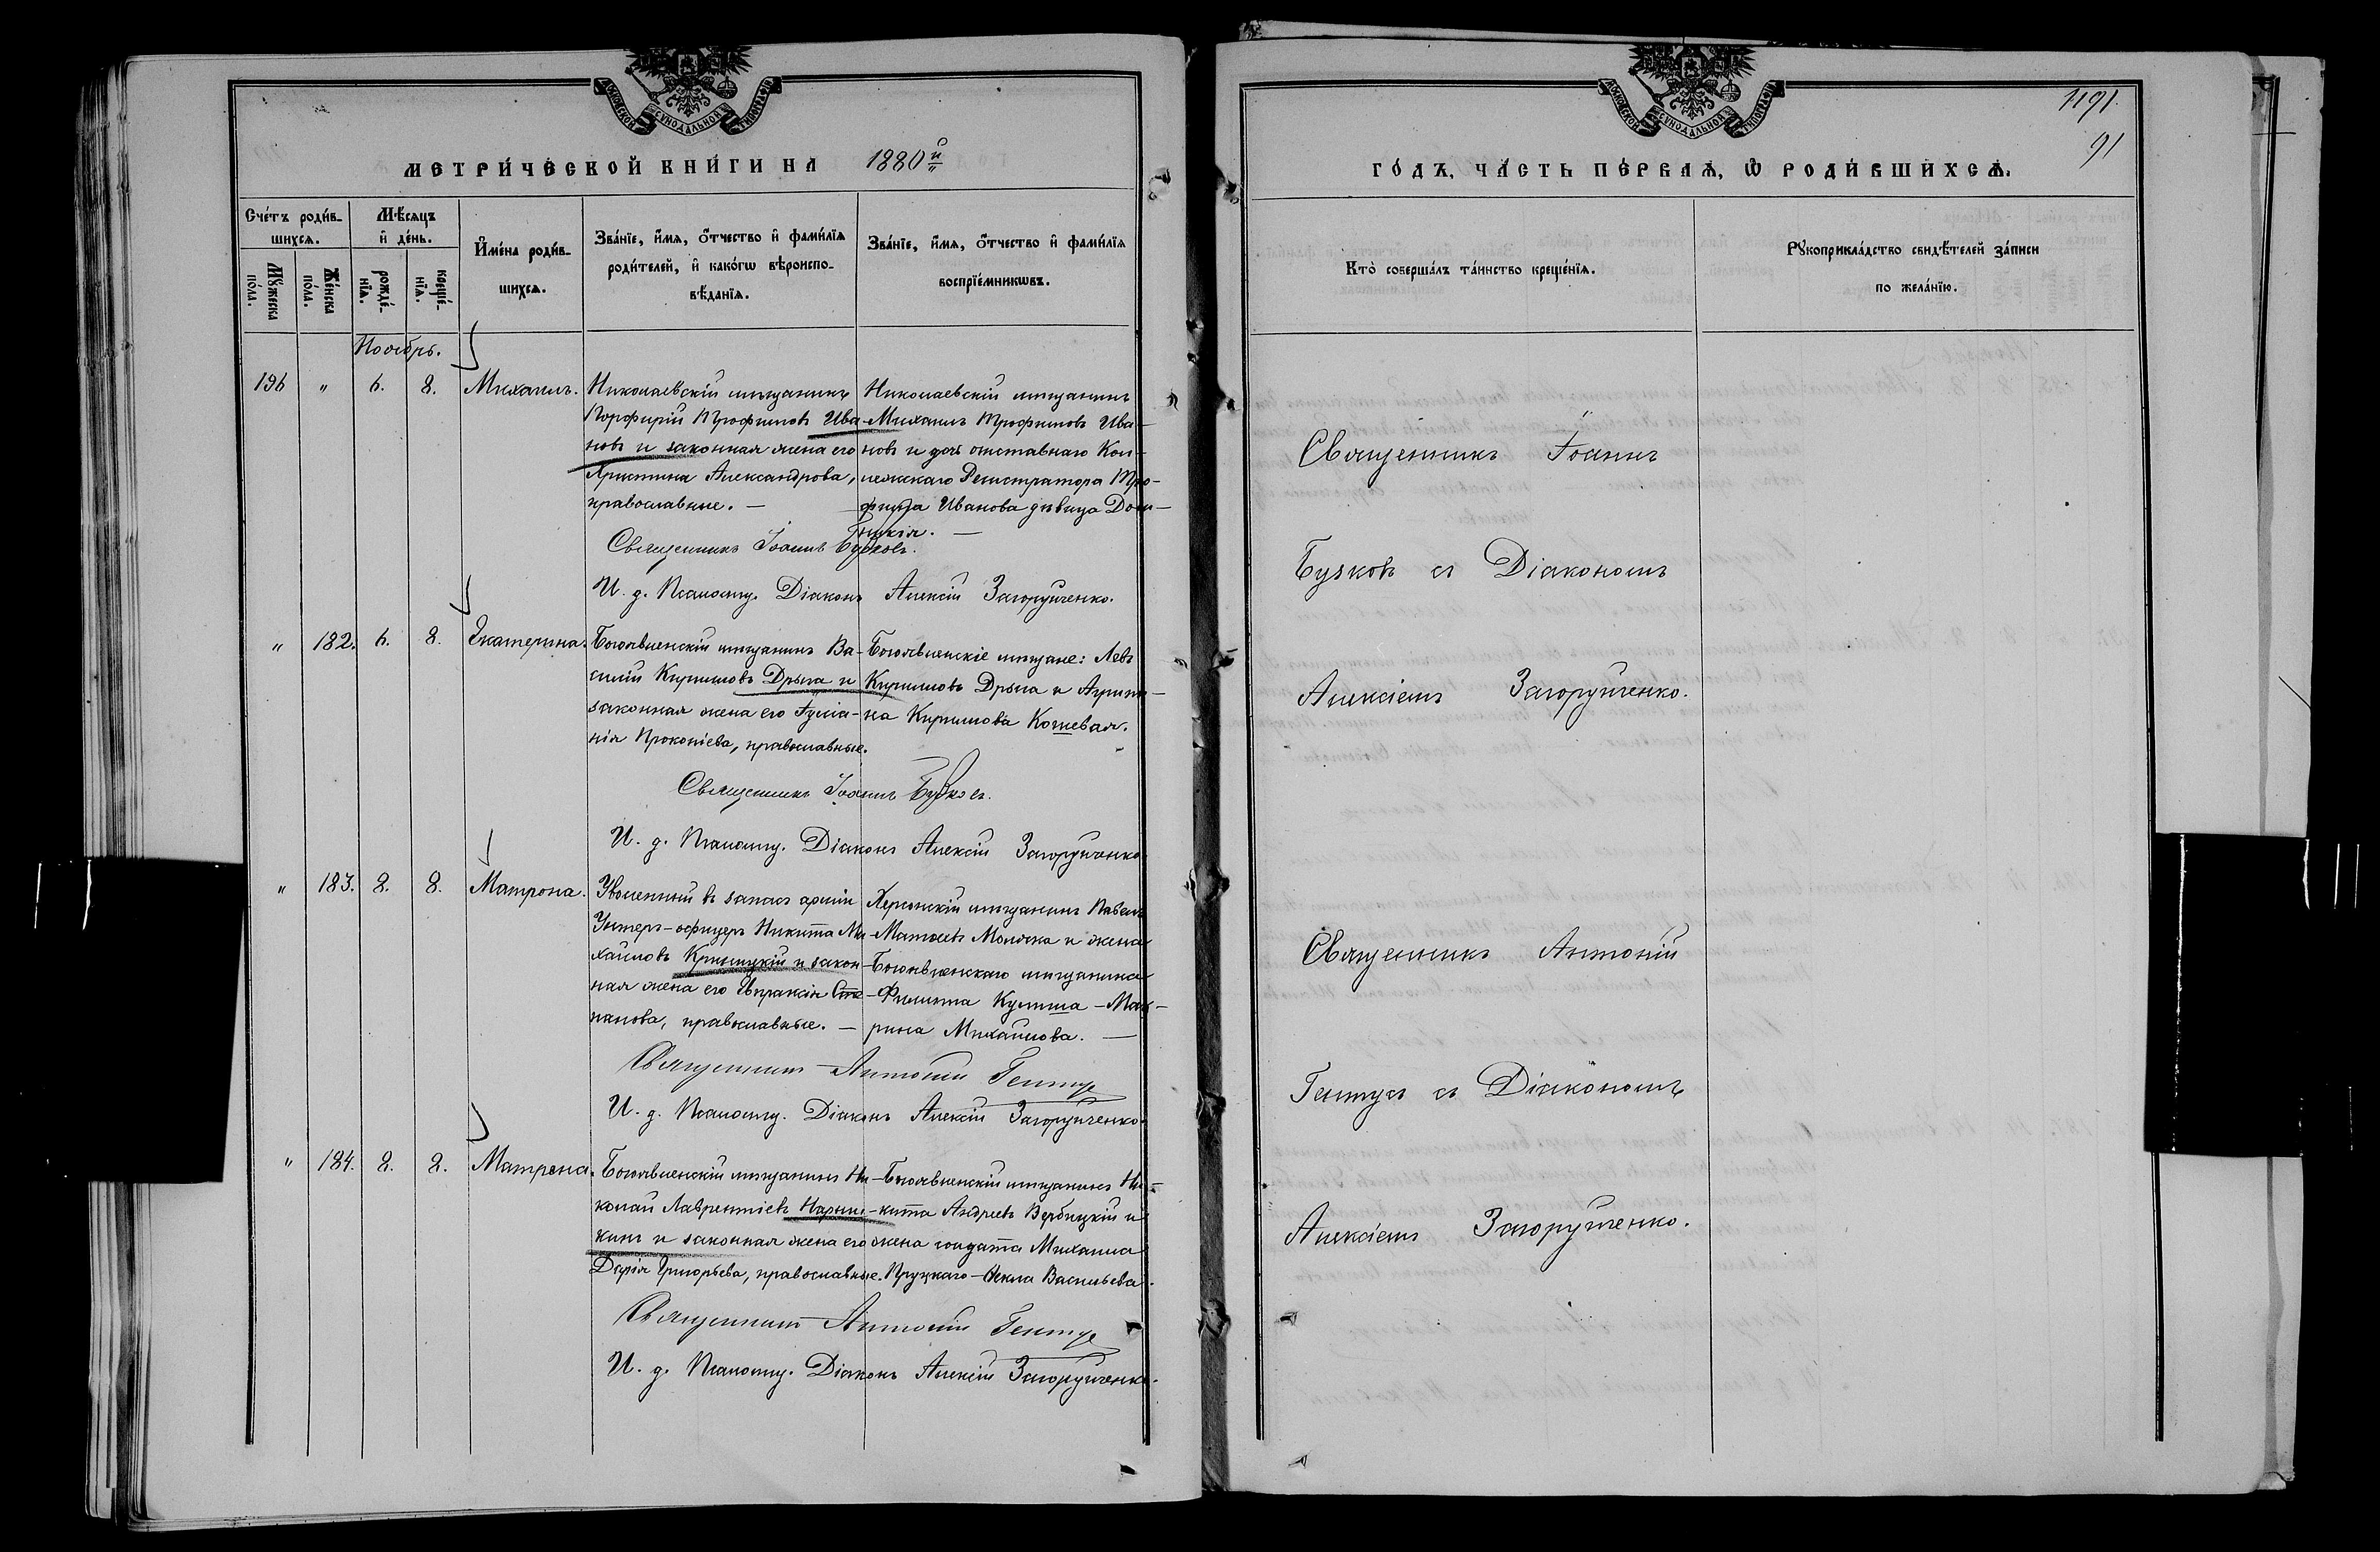 МОСКОВСКОЙ СѴНОДАЛЬНОЙ ТИПОГРАФІИ
МЕТРИ́ЧЕСКОЙ КНИ́ГИ НА 1880й
Сче́тъ роди́в-
шихсѧ.
Мѣ́сяцъ
и҆ де́нь.
И҆мена̀ роди́в-
шихсѧ.
Зва́нїе, и҆́мѧ, ѻ҆́тчество и҆ фами́лїѧ
роди́телей, и҆ како́гѡ вѣроиспо-
вѣ́данїѧ.
Зва́нїе, и҆́мѧ, ѻ҆́тчество и҆ фами́лїѧ
воспрїе́мникѡвъ.
Мꙋ́жеска
по́ла.
Же́нска
по́ла.
рожде́-
нїѧ.
креще́-
нїѧ.
Ноябрь.
196 " 6. 8. Михаилъ.
Николаевскій мѣщанинъ
Порфирій Трофимовъ Ива-
новъ и законная жена его
Христина Александрова,
православные. —
Николаевскій мѣщанинъ
Михаилъ Трофимовъ Ива-
новъ и дочь отставнаго Кол-
лежскаго Регистратора Тро-
фима Иванова дѣвица Дом-
никія. —
Священникъ Іоаннъ Бузковъ.
И. д. Псаломщ. Діаконъ Алексій Загоруйченко.
" 182. 6. 8. Екатерина.
Богоявленскій мѣщанинъ Ва-
силій Кирилловъ Дрыга и
законная жена его Іуліа-
нія Прокопіева, православные.
Богоявленскіе мѣщане: Левъ
Кирилловъ Дрыга и Агрипи-
на Кириллова Кочневая.
Священникъ Іоаннъ Бузковъ.
И. д. Псаломщ. Діаконъ Алексій Загоруйченко.
" 183. 8. 8. Матрона.
Уволенный въ запасъ арміи
Унтеръ-офицеръ Никита Ми-
хайловъ Криницкій и закон-
ная жена его Евпраксія Сте-
панова, православные. —
Херсонскій мѣщанинъ Павелъ
Матѳеевъ Молочка и жена
Богоявленскаго мѣщанина
Филиппа Кулиша — Ма-
рина Михайлова. —
Священникъ Антоній Гентуз
И. д. Псаломщ. Діаконъ Алексій Загоруйченко.
" 184. 8. 8. Матрона.
Богоявленскій мѣщанинъ Ни-
колай Лаврентіевъ Нарыш-
кинъ и законная жена его
Дарія Григорьева, православные.
Богоявленскій мѣщанинъ Ни-
кита Андреевъ Вербицкій и
жена солдата Михаила
Пруцкаго — Ѳекла Васильева.
Священникъ Антоній Гентуз
И. д. Псаломщ. Діаконъ Алексій Загоруйченко.
1191.
91
МОСКОВСКОЙ СѴНОДАЛЬНОЙ ТИПОГРАФІИ
ГО́ДЪ, ЧА́СТЬ ПЕ́РВАѦ, Ѡ҆ РОДИ́ВШИХСѦ.
Кто̀ соверша́лъ та́инство креще́нїѧ.
Рꙋкоприкла́дство свидѣ́телей за́писи
по жела́нїю.
Священникъ Іоаннъ
Бузковъ съ Діакономъ
Алексіемъ Загоруйченко.
Священникъ Антоній
Гентузъ съ Діакономъ
Алексіемъ Загоруйченко.